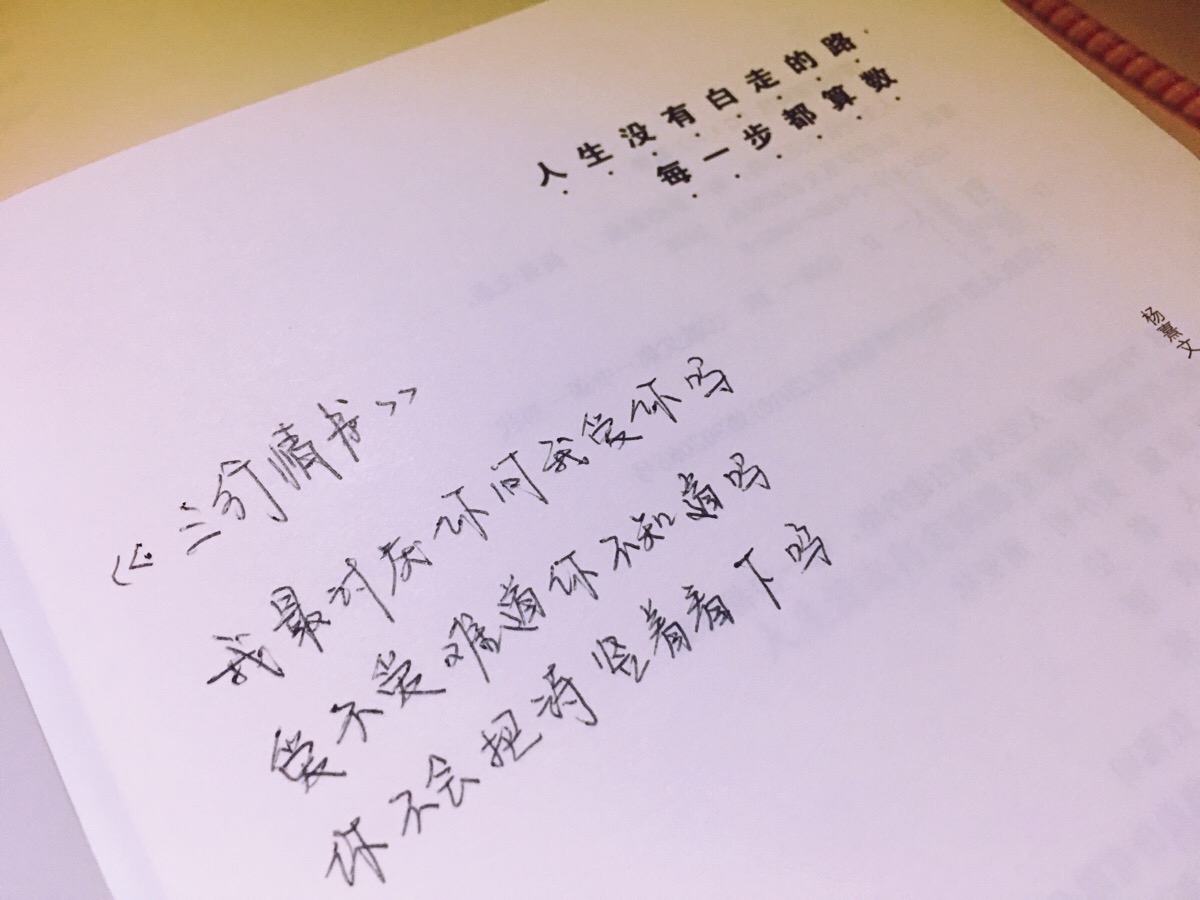 人生没有白走的路
每一步都算数
杨熹文
《三行情书》
我最讨厌你问我爱你吗
爱不爱难道你不知道吗
你不会把诗竖着看下吗